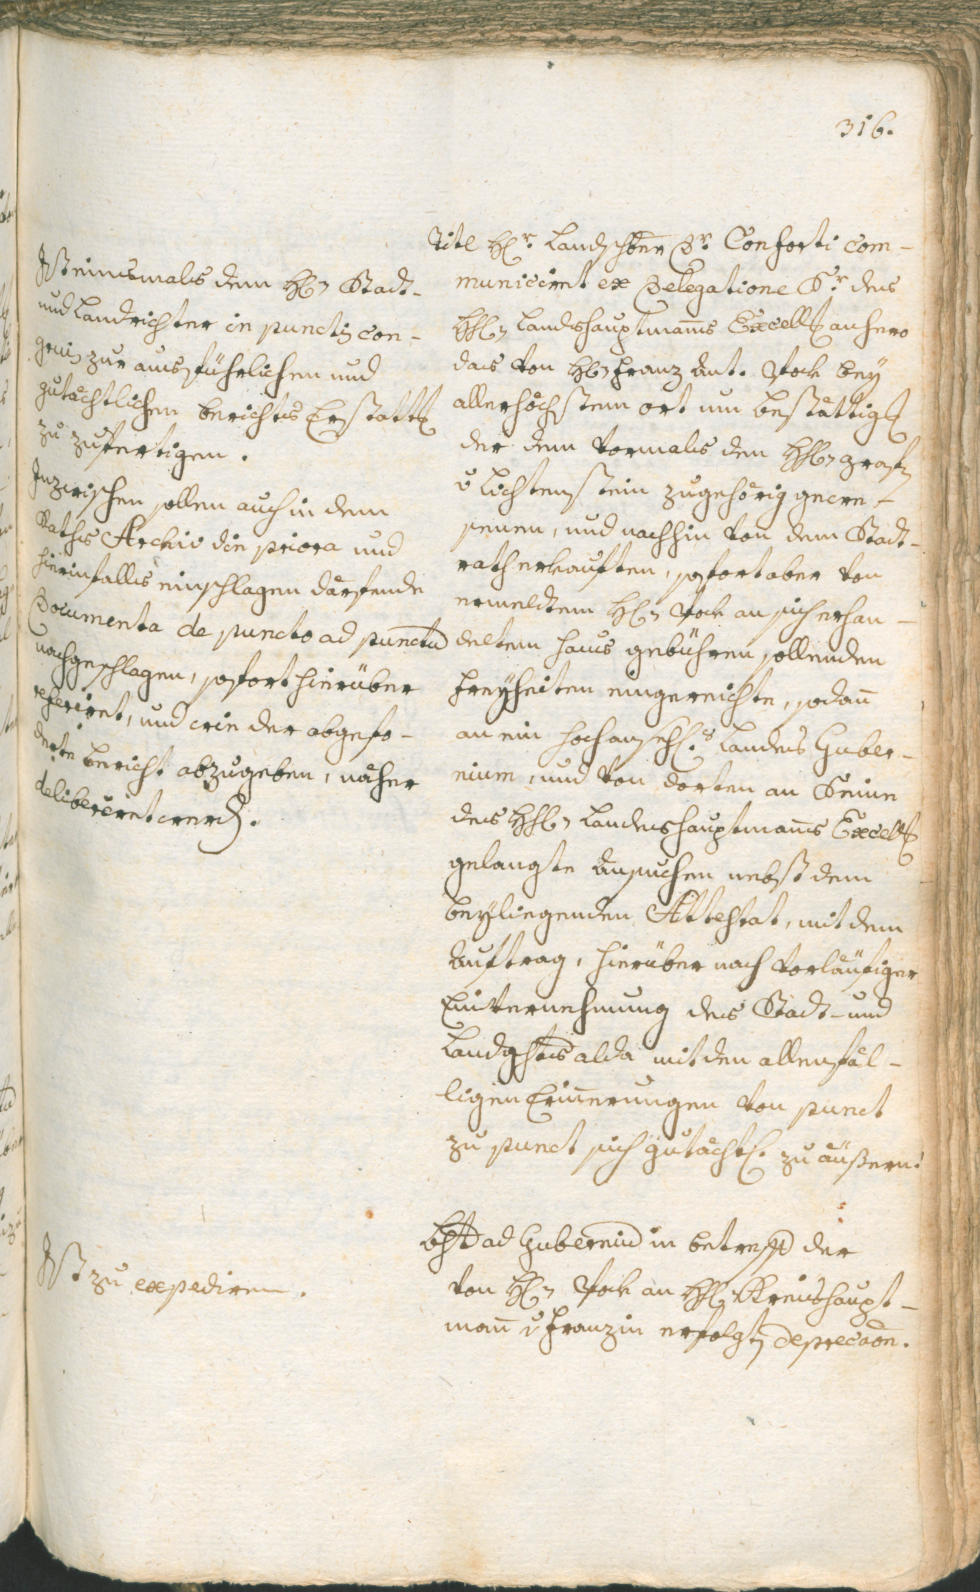 316.
Ist einsmals dem H. Stadt-
und Landrichter in punctis con-
gruis zur ausführlichen und
gutächtlichen berichts Erstattg
zu zufertigen.
Inzwischen sollen auch in dem
Raths Archiv die priora und
hierinfalls einschlagen därfende
Documenta de puncto ad punctū
nachgeschlagen, sofort hierüber
referirt, und wie der abgefo-
derte bericht abzugeben, näher
deliberirt werd.
Titl H.r Landschbr Dr. Conforti com-
municirt ex Delegatione Sr des
H. Landshauptmanns Excell anhero
das von H. Franz Ant. Pock bey
allerhöchstem ort um bestättig
der dem vormals den H. Grafn
v Lichtenstein zugehörig gewe-
senen, und nachhin von dem Stadt-
rath erkauften, sofort aber von
ermeldtem H. Pock an sich erhan-
deltem haus gebühren sollenden
Freyheiten eingereichte, sodann
an ein hochansehl.s Landes Guber-
nium, und von dorten an Seine
des H. Landeshauptmanns Excell
gelangte Ansuchen nebst dem
beyliegenden Attestat, mit dem
Auftrag, hierüber nach vorläufiger
Einvernehmung des Stadt- und
Landgchts alda mit den allenfäl-
ligen Erinnerungen von punct
zu punct sich gutächtl. zu äußern.
Ist zu expediren.
bcht ad Guberniū in betreff der
von H. Pock an H. Kreishaupt-
mann v Franzin erfolgtn deprecaōn.